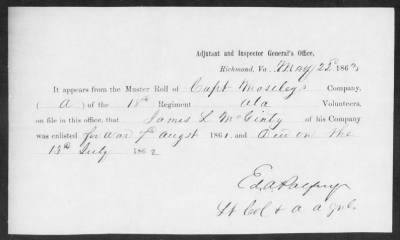 Adjutant and Inspector General's Office,
Richmond, Va. May 22d 1863
It appears from the Muster Roll of Capt Moseley's Company,
( A ) of the 18th Regiment Ala Volunteers,
on file in this office, that James L McGinty of his Company
was enlisted for war 7th augst 1861. and died on the
13th July 1862
Ed. A Palfrey
Lt Col & a a genl